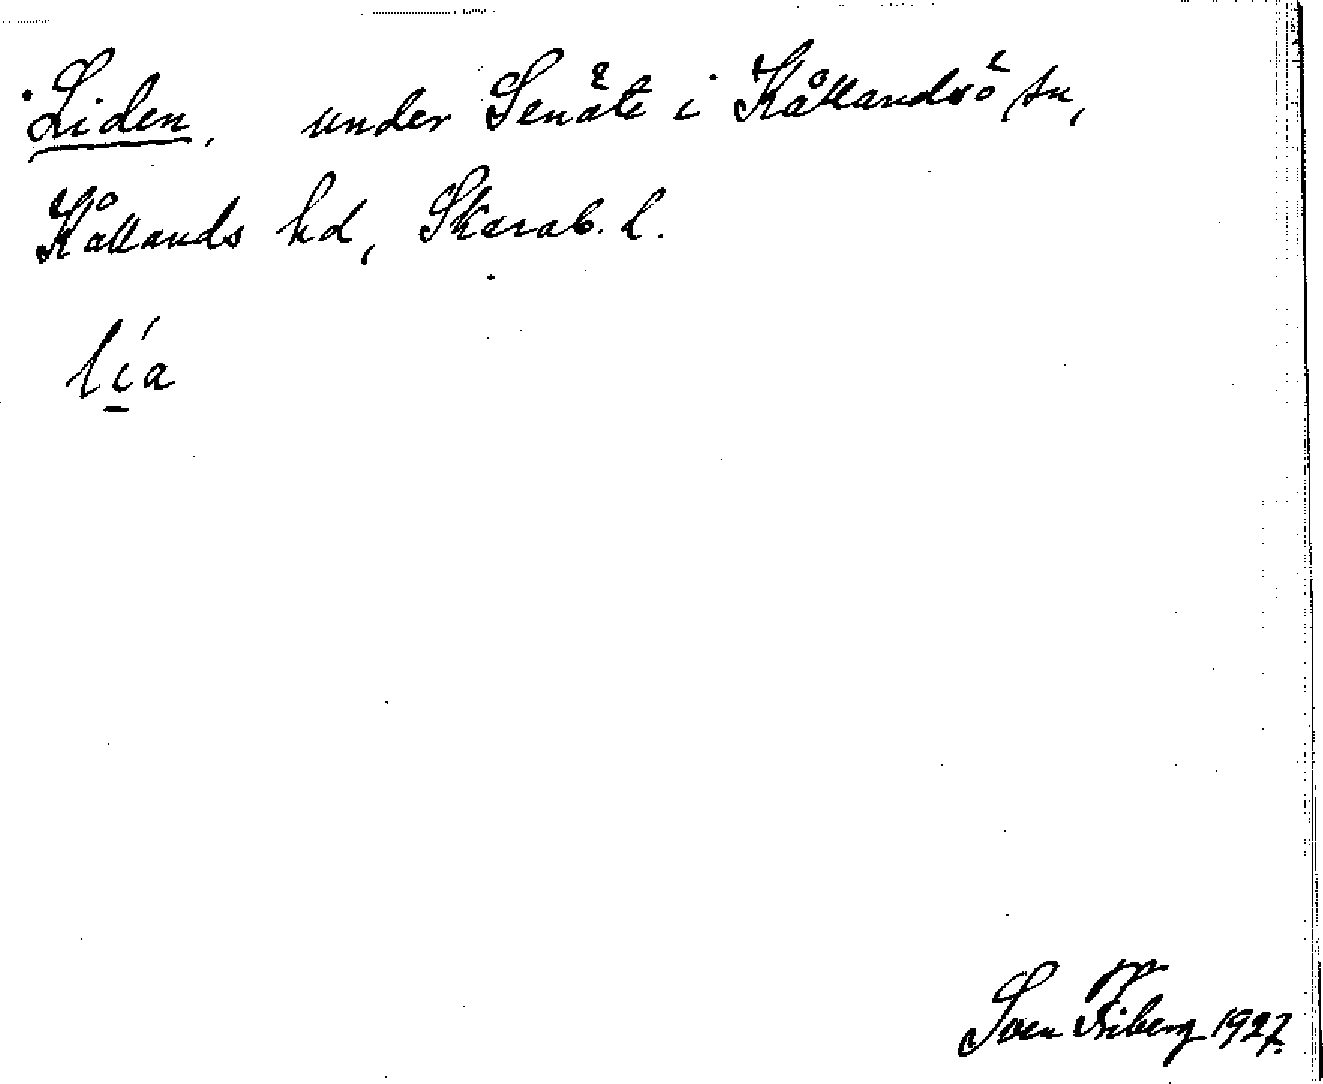 Liden, under Senäte i Kållandsö sn,
Kållands hd, Skarab. l.
lía
Sven Friberg 1927.